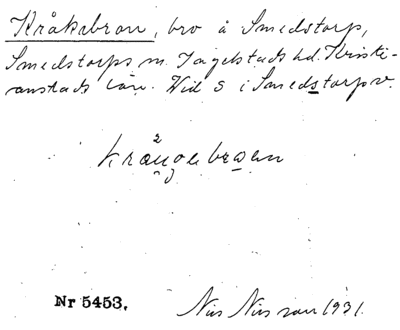 Kråkabron, bro å Smedstorp,
Smedstorps sn. Ingelstads hd. Kristi-
anstads län. Vid S i Smedstorp v.
Nr 5453. Nils Nilsson 1931.